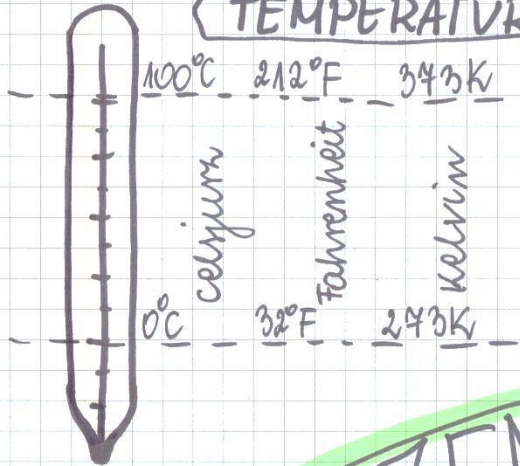 TEMPERATUR
100°C 212°F 373K
Celsjusz
Fahrenheit
Kelvin
0°C 32°F 273K